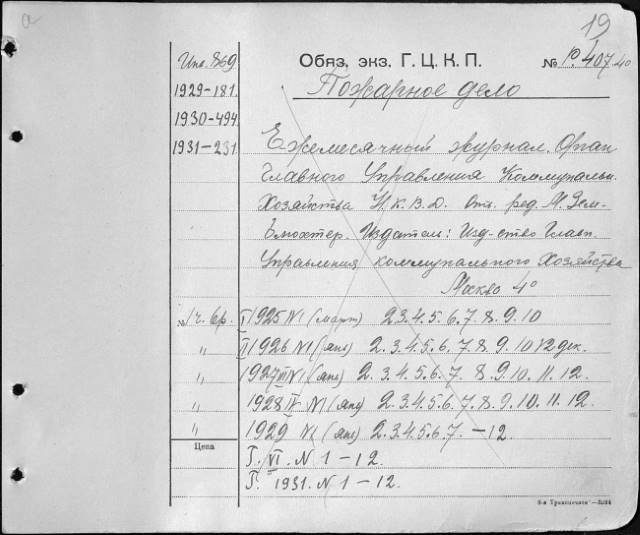 19
Инв. 869
Обяз. экз. Г. Ц. К. П.
№ 407-40
1929-181.
Пожарное дело
1930-494.
1931-231
Ежемесячный журнал. Орган
Главного Управления Коммунальн.
Хозяйства Н.К.В.Д. Отв. ред. М. Зем-
Блюхтер. Издатель: Изд-ство Главн.
Управления коммунального Хозяйства
Москва 4°
№ 1925 N1 (март) 2.3.4.5.6.7.8.9.10
" II 1926 N1 (янв) 2.3.4.5.6.7.8.9.10 12 дек.
" 1927 III N1 (янв) 2.3.4.5.6.7.8.9.10.11.12.
" 1928 IV N1 (янв) 2.3.4.5.6.7.8.9.10.11.12.
" 1929 N1 (янв) 2.3.4.5.6.7.-12.
Цена
Г. VI. N 1-12.
Г. 1931. N 1-12.